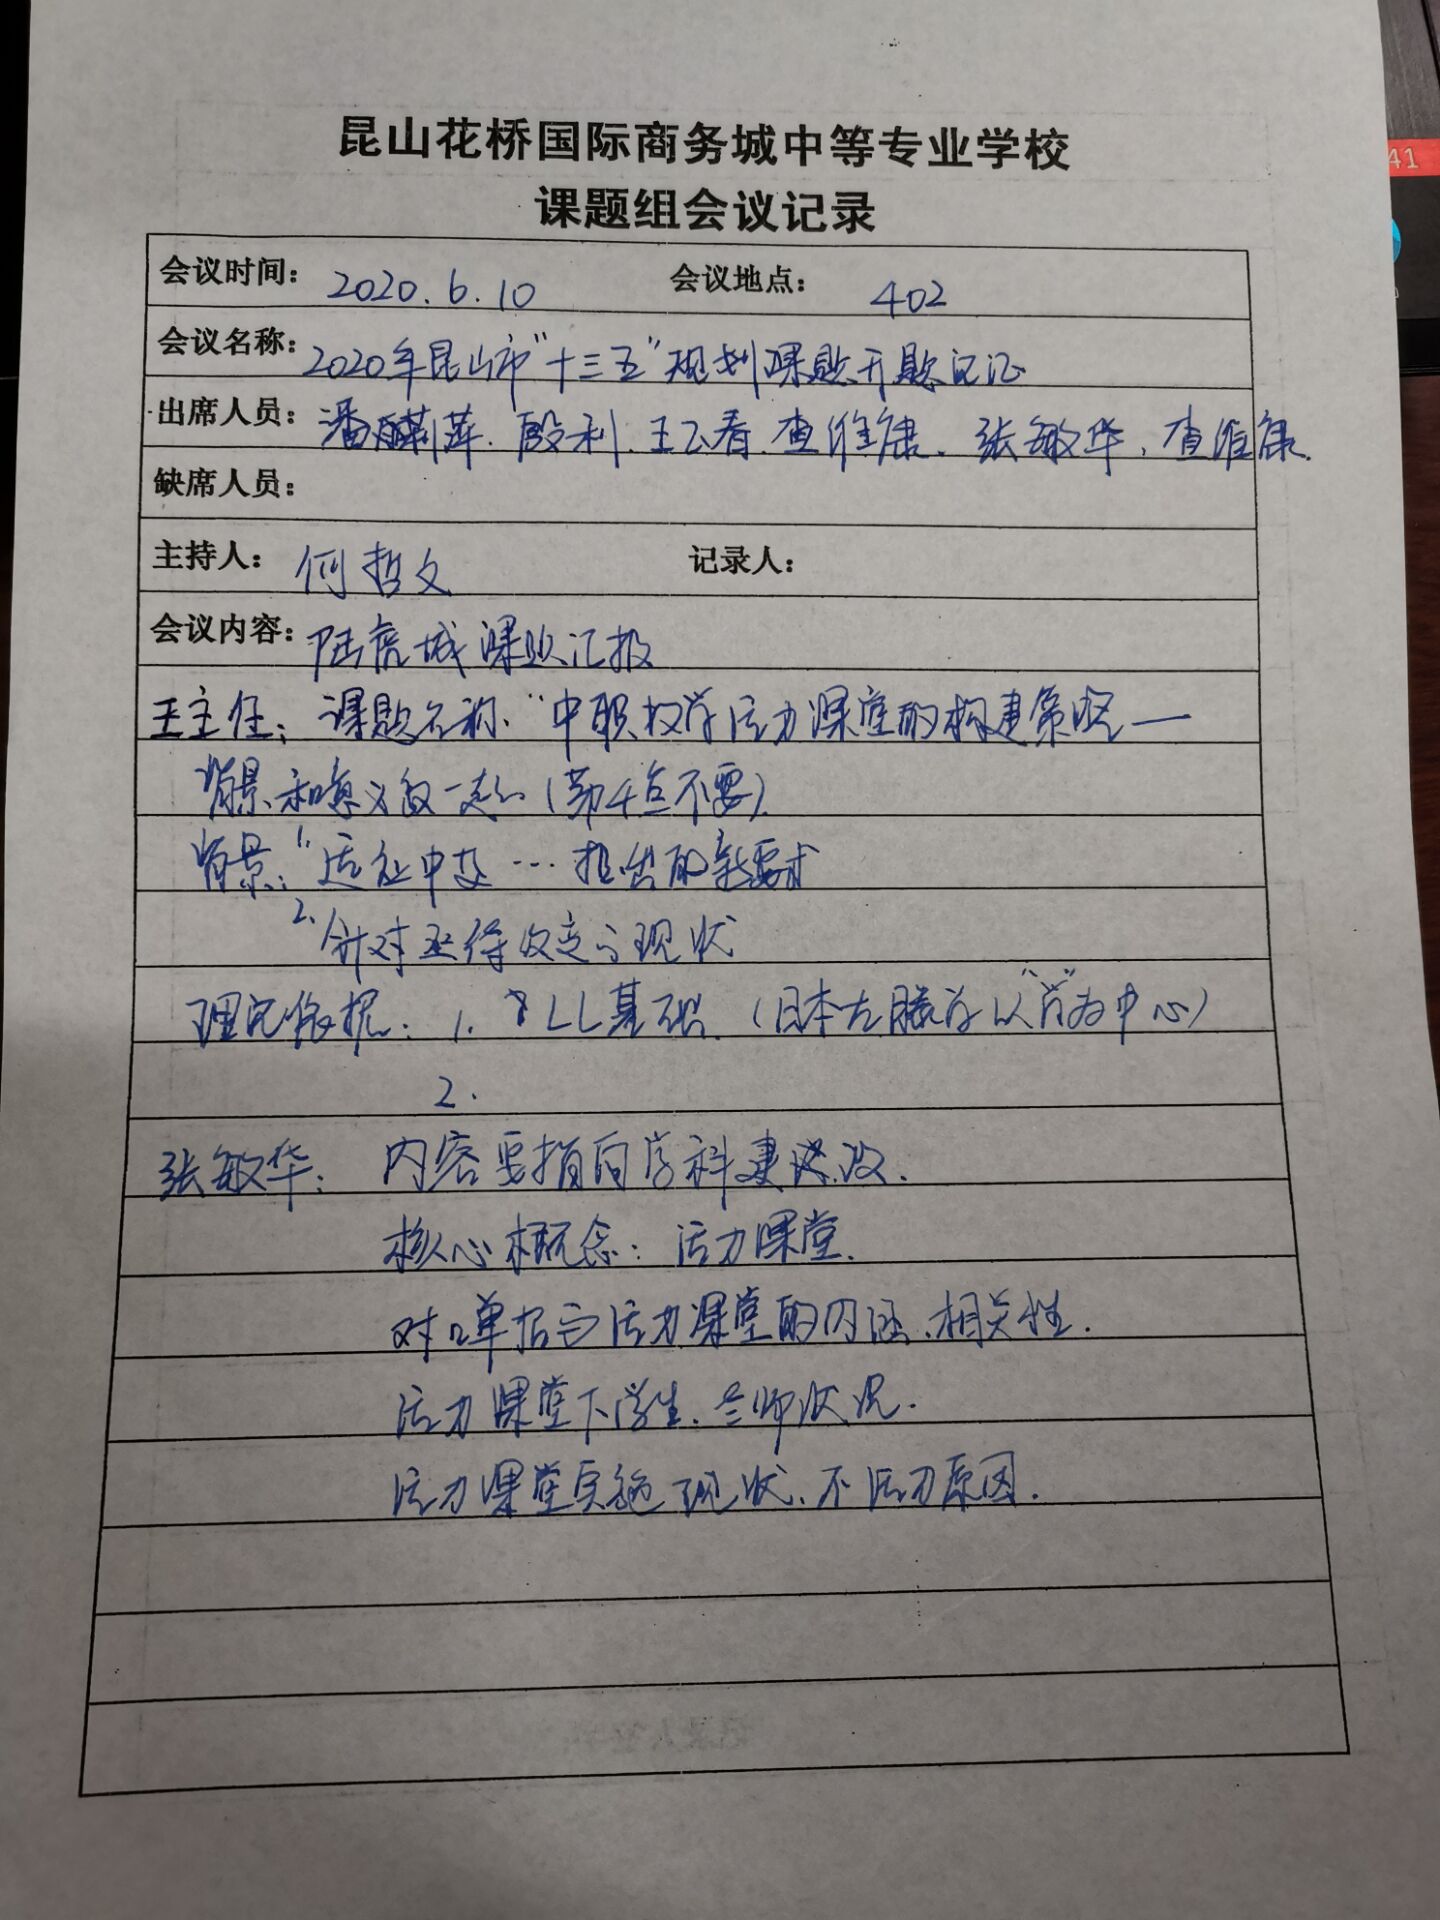 41
昆山花桥国际商务城中等专业学校
课题组会议记录
会议时间: 2020.6.10 会议地点: 402
会议名称: 2020年昆山市"十三五"规划课题开题记记
出席人员: 潘麒萍、殷利、王云看、查维康、张敏华、查维康.
缺席人员:
主持人: 何哲文 记录人:
会议内容: 陆虎城课题汇报
王主任: 课题名称、"中职数学活力课堂的构建策略一
背景和意义放一起 (第4点不要)
背景: 1. 适应中 … 提出的新要求
2. 针对亟待改变的现状
理论依据: 1. LL基础. (日本左藤学以"学"为中心)
2.
张敏华: 内容要指向学科建设.
核心概念: 活力课堂.
对 活力课堂的内涵、相关性.
活力课堂下学生、老师状况.
活力课堂实施现状、不活力原因.